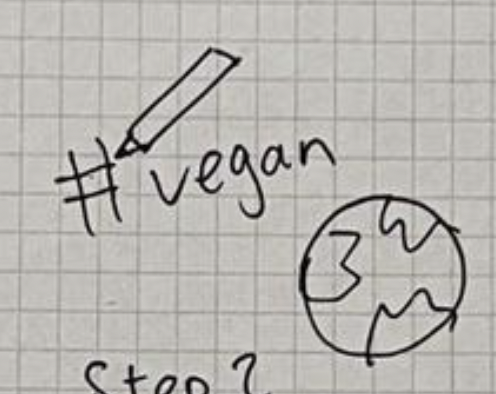 #vegan
Step 2